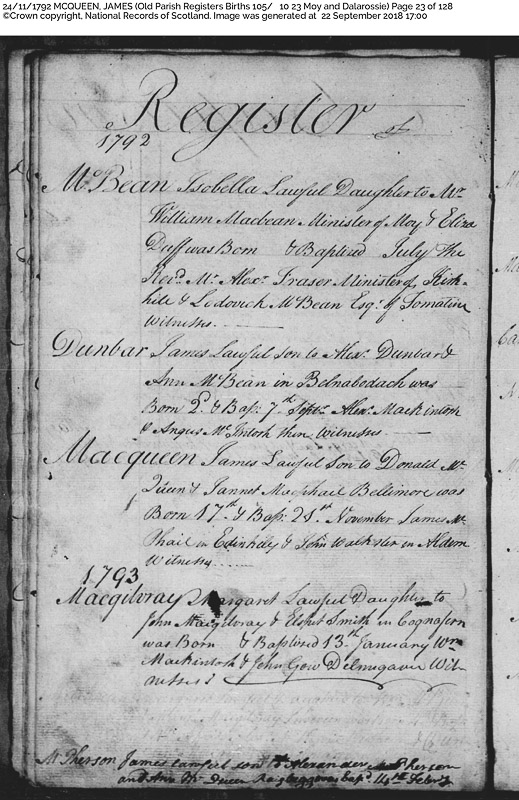 24/11/1792 MCQUEEN, JAMES (Old Parish Registers Births 105/ 10 23 Moy and Dalarossie) Page 23 of 128
©Crown copyright, National Records of Scotland. Image was generated at 22 September 2018 17:00
Register of
1792
McBean Isobella Lawful Daughter to Mr
William Macbean Minister of Moy & Eliza
Duff was Born & Baptised July The
Revd Mr Alexr Fraser Minister of Kirk-
hill & Lodovick McBean Esqr of Tomatin
Witnesses
Dunbar James Lawful Son to Alexr Dunbar &
Ann McBean in Belnabodach was
Born 2d & Bap: 7th Septr Alexr Mackintosh
& Angus McIntosh there Witnesses
Macqueen James Lawful Son to Donald Mc
Queen & Jannet Macphail Beltimore was
Born 17th & Bap: 21st November James Mc
Phail in & John in
Witness
1793
Macgilvray Margaret Lawful Daughter to
John Macgilvray & Elspet Smith in
was Born & Baptised 13th January Wm
Mackintosh & John Gow Delmugavie Wit-
nesses
McPherson James Lawful son to Alexander McPherson
and Ann McQueen was bapd 14th Febry